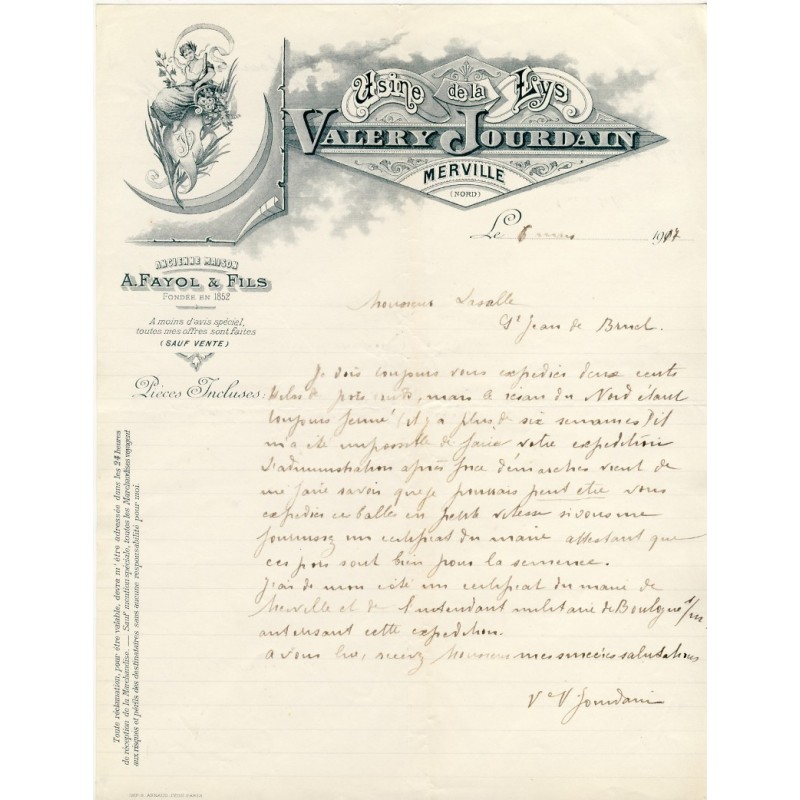 Usine de la Lys
VALERY JOURDAIN
MERVILLE
(NORD)
Le 6 mars 1917
ANCIENNE MAISON
A. FAYOL & FILS
FONDÉE EN 1852
A moins d'avis spécial,
toutes mes offres sont faites
(SAUF VENTE)
Pièces Incluses:
Monsieur Lasalle
St Jean de Bruel.
Je dois toujours vous expédier deux cents
kilos de pois verts, mais le réseau du Nord étant
toujours fermé (il y a plus de six semaines) il
m'a été impossible de faire votre expédition
L'administration après force démarches vient de
me faire savoir que je pourrais peut être vous
expédier ces balles en petite vitesse si vous me
fournissez un certificat du maire attestant que
ces pois sont bien pour la semence.
J'ai de mon côté un certificat du maire de
Merville et de l'intendant militaire de Boulogne s/m
autorisant cette expédition.
A vous lire, recevez Monsieur mes sincères salutations
Ve V. Jourdain
Toute réclamation, pour être valable, devra m'être adressée dans les 24 heures
de réception de la Marchandise. — Sauf mention spéciale, toutes les Marchandises voyagent
aux risques et périls des destinataires sans aucune responsabilité pour moi.